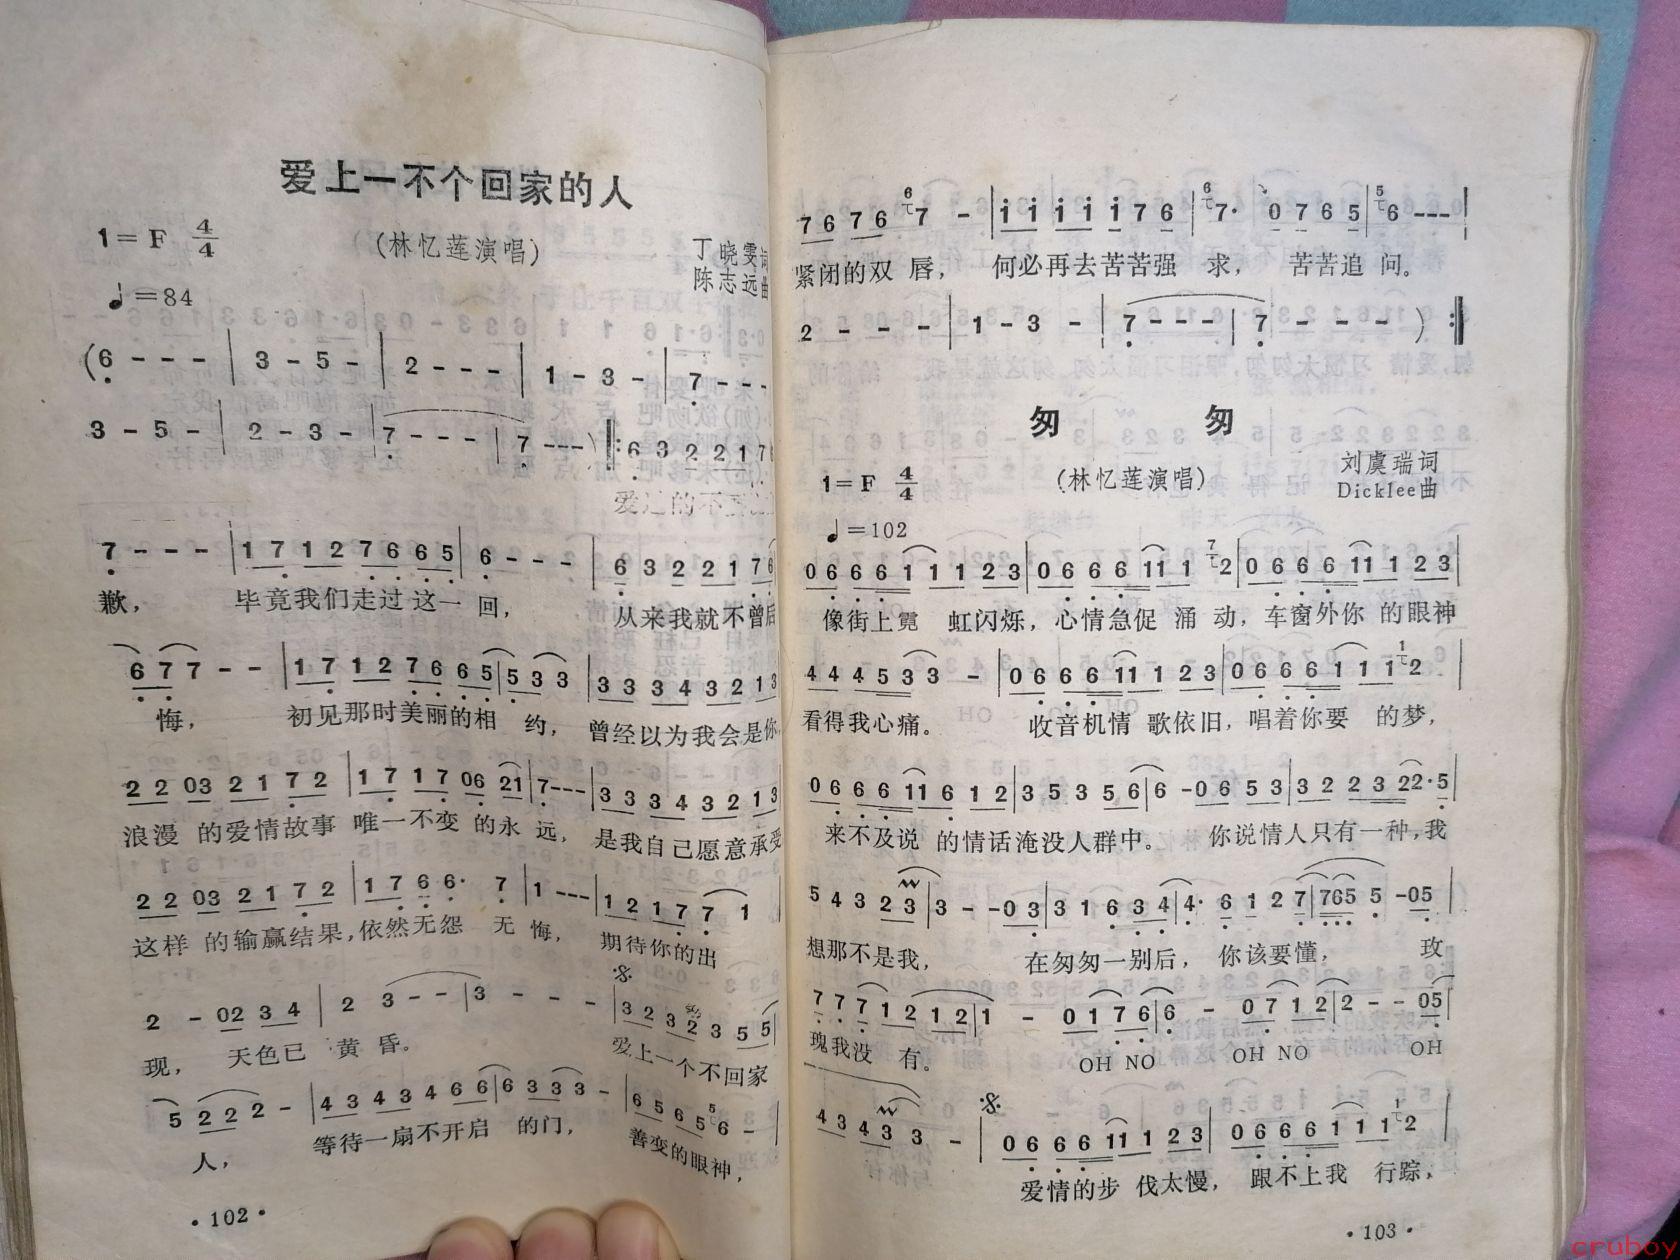 爱上一不个回家的人
1=F 4/4
(林忆莲演唱)
丁晓雯词
陈志远曲
♩=84
(6 - - - | 3 - 5 - | 2 - - - | 1 - 3 - | 7 - - -
3 - 5 - | 2 - 3 - | 7 - - - | 7 - - - ) ‖: 6 3 2 2 1 7
爱过的不
7 - - - | 1 7 1 2 7 6 6 5 | 6 - - - | 6 3 2 2 1 7 6
歉， 毕竟我们走过这一 回， 从来我就不曾后
6 7 7 - - | 1 7 1 2 7 6 6 5 | 5 3 3 | 3 3 3 4 3 2 1 3
悔， 初见那时美丽的相 约， 曾经以为我会是你
2 2 0 3 2 1 7 2 | 1 7 1 7 0 6 2 1 | 7 - - - | 3 3 3 4 3 2 1 3
浪漫 的爱情故事 唯一不变 的永 远， 是我自己愿意承受
2 2 0 3 2 1 7 2 | 1 7 6 6· 7 | 1 - - - | 1 2 1 7 7 1
这样 的输赢结果，依然无怨 无 悔， 期待你的出
2 - 0 2 3 4 | 2 3 - - | 3 - - - | 3 2 3 2 3 5 5
现， 天色已 黄 昏。 爱上一个不回家
5 2 2 2 - | 4 3 4 3 4 6 6 | 6 3 3 3 - | 6 5 6 5 6 -
人， 等待一扇不开启 的门， 善变的眼神，
·102·
7 6 7 6 7 - | 1 1 1 1 1 7 6 | 7· 0 7 6 5 | 6 - - - |
紧闭的双 唇， 何必再去苦苦强 求， 苦苦追 问。
2 - - - | 1 - 3 - | 7 - - - | 7 - - - ) :‖
匆 匆
1=F 4/4
(林忆莲演唱)
刘虞瑞词
Dicklee曲
♩=102
0 6 6 6 1 1 1 2 3 | 0 6 6 6 1 1 1 2 | 0 6 6 6 1 1 1 2 3 |
像街上霓 虹闪烁，心情急促 涌 动，车窗外你 的眼神
4 4 4 5 3 3 - | 0 6 6 6 1 1 1 2 3 | 0 6 6 6 1 1 1 2 |
看得我心痛。 收音机情 歌依旧，唱着你要 的梦，
0 6 6 6 1 1 6 1 2 | 3 5 3 5 6 | 6 - 0 6 5 3 | 3 2 2 3 2 2·5 |
来不及说 的情话淹没人群中。 你说情人只有一种，我
5 4 3 2 3 | 3 - - 0 3 | 3 1 6 3 4 | 4· 6 1 2 7 | 7 6 5 5 - 0 5 |
想那不是我， 在匆匆一别后， 你该要懂， 玫
7 7 7 1 2 1 2 | 1 - 0 1 7 6 | 6 - 0 7 1 2 | 2 - - 0 5 |
瑰我没 有。 OH NO OH NO OH
4 3 4 3 3 - | 0 6 6 6 1 1 1 2 3 | 0 6 6 6 1 1 1 2 |
爱情的步 伐太慢， 跟不上我 行踪，
·103·
cruboy